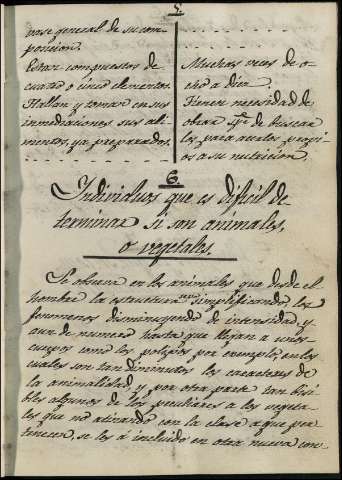 5.
vase general de su com-
posicion.
Estar compuestos de
cuatro ó cinco elementos.
Hallan y toman en sus
inmediaciones sus ali-
mentos, ya preparados.
Muchas veces de o-
cho a diez.
Tienen necesidad de
obrar de buscar
los para averlos propi-
os a su nutricion.
6.
Individuos que es dificil de
terminar si son animales,
o vegetales.
Se observa en los animales que desde el
hombre la estructura simplificandose, los
foumenos disminuyendo de intensidad y
aun de numero hasta que llegan a unos
cuerpos como los polipos por egemplo, en los
cuales son tan diminutos los caracteres de
la animalidad y por otra parte tan bisi-
bles algunos de los peculiares a los vegeta-
les que no atinando con la clase a que per-
tenecen, se les á incluido en otra nueva con-